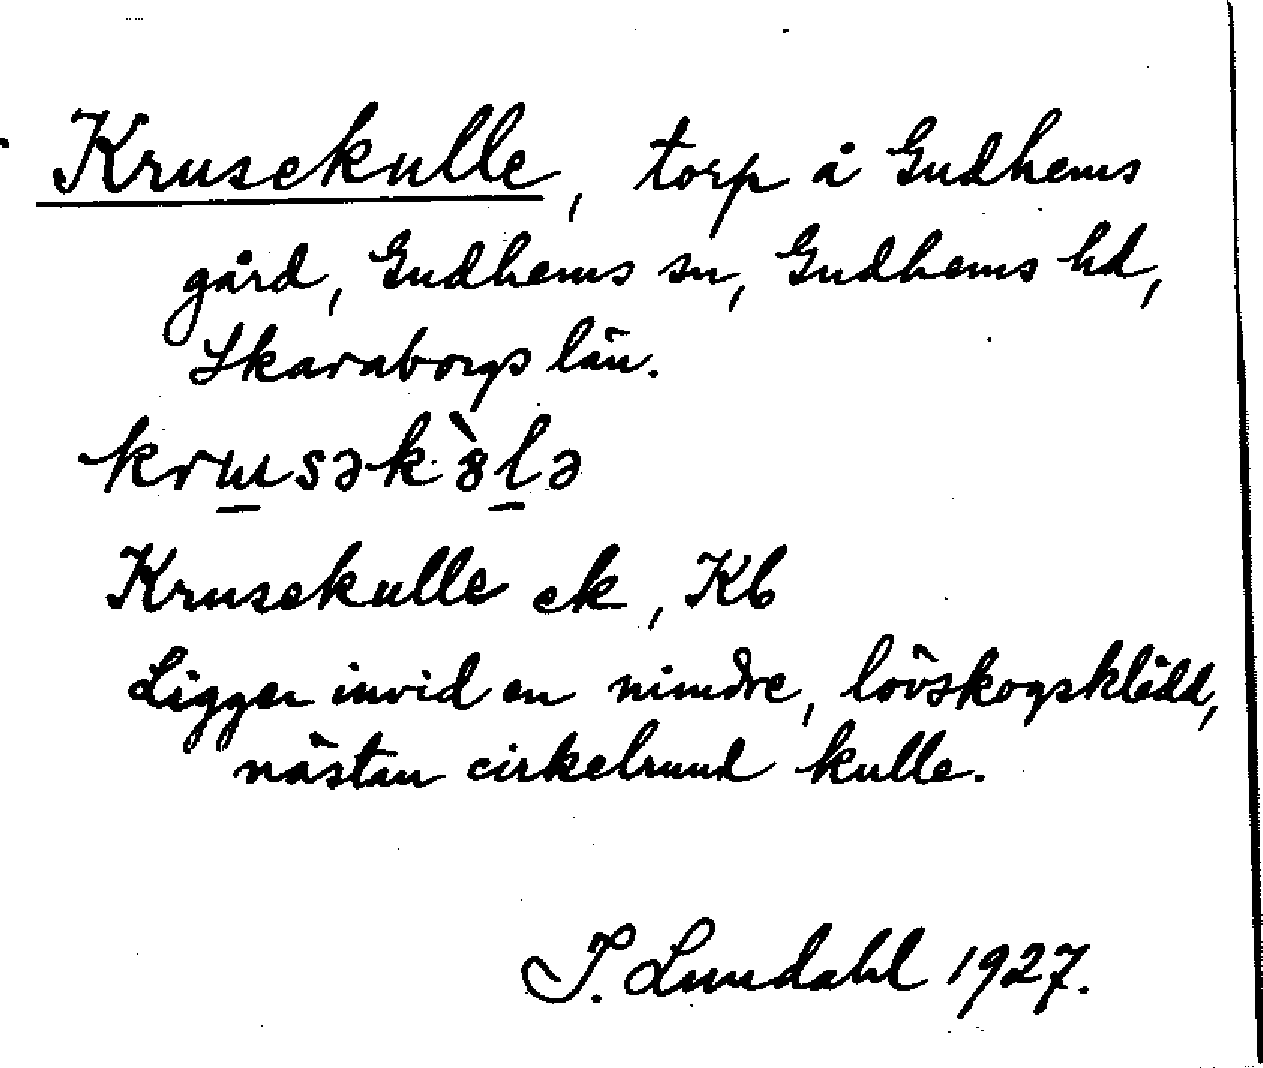 Krusekulle, torp å Gudhems
gård, Gudhems sn, Gudhems hd,
Skaraborgs län.
krɯsəkòlə
Krusekulle ek, Kb
Ligger invid en mindre, lövskogsklädd,
nästan cirkelrund kulle.
I. Lundahl 1927.